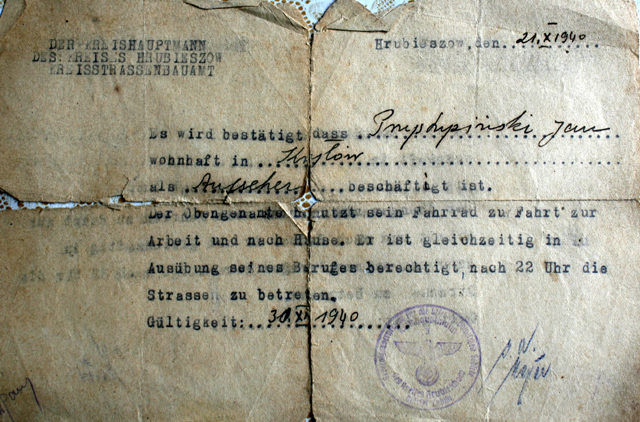 DER KREISHAUPTMANN
DES KREISES HRUBIESZÓW
KREISSTRASSENBAUAMT
Hrubieszow, den 21.XI 1940
Es wird bestätigt dass Jan
wohnhaft in
als Aufseher beschäftigt ist.
Der Obengenannte benutzt sein Fahrrad zu Fahrt zur
Arbeit und nach Hause. Er ist gleichzeitig in
Ausübung seines Berufes berechtigt nach 22 Uhr die
Strassen zu betreten.
Gültigkeit: 30.XI 1940